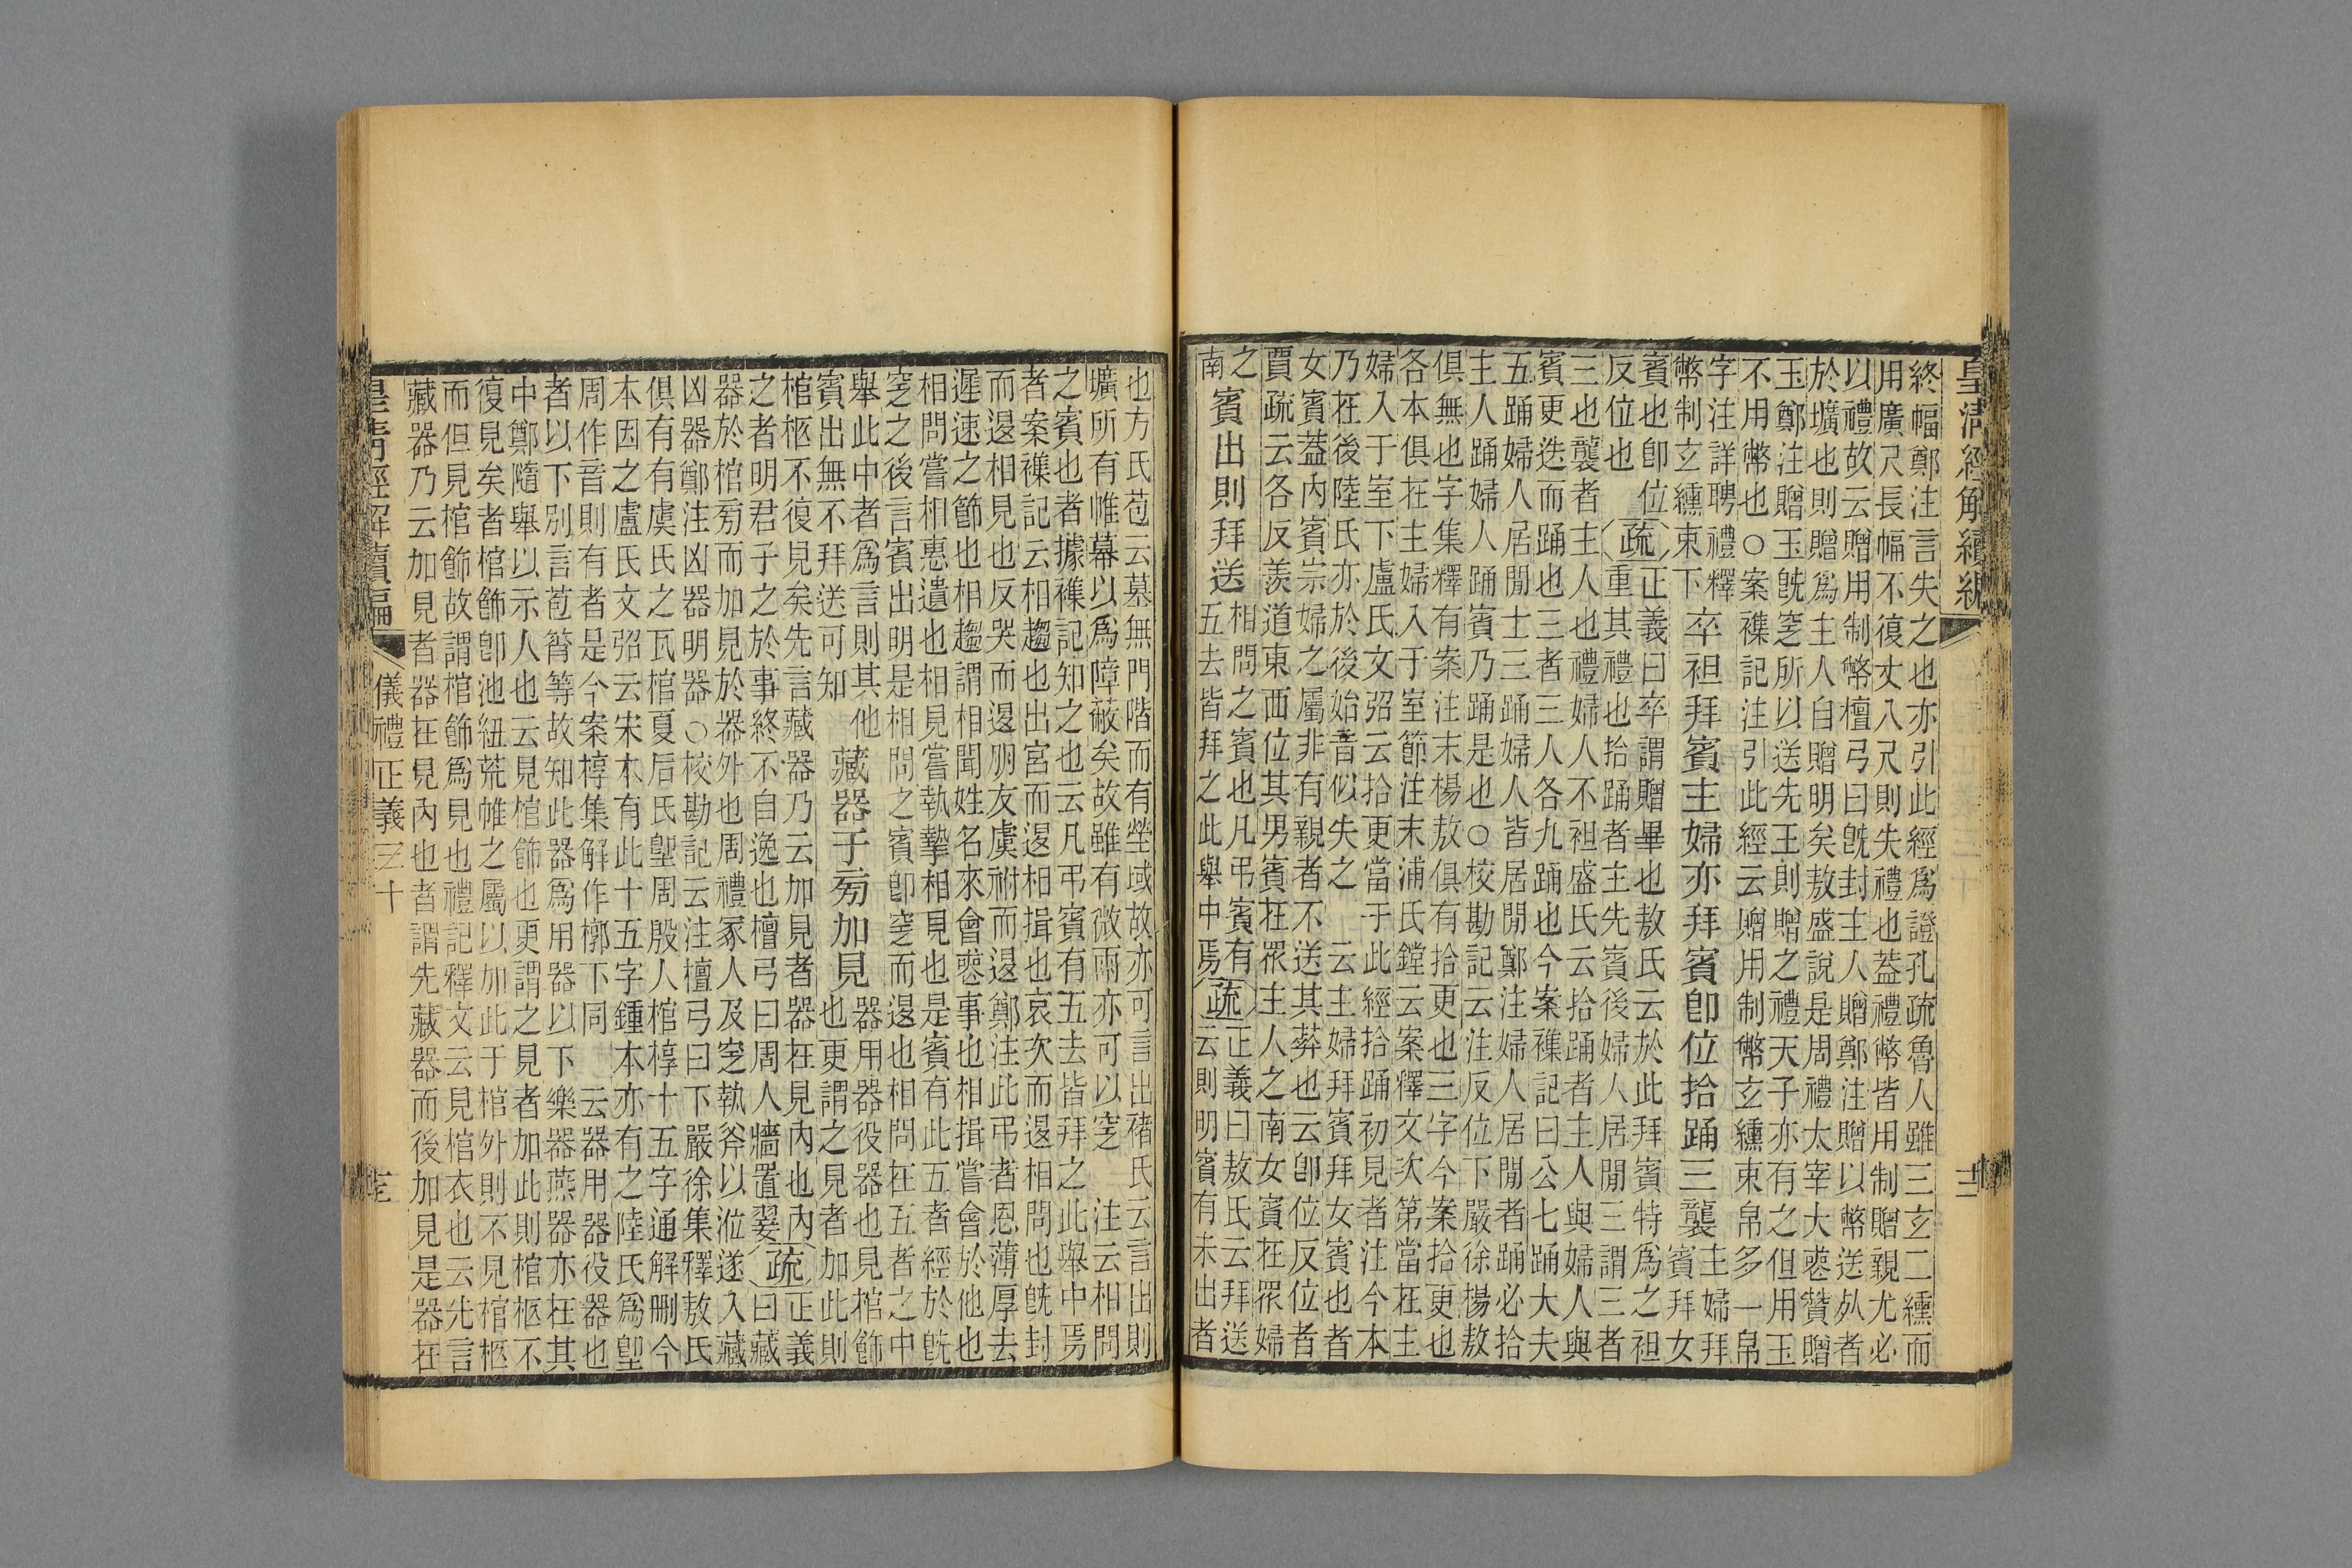 皇淸經解續編
十二
終幅鄭注言失之也亦引此經爲證孔疏魯人雖三玄二纁而
用廣尺長幅不復丈八尺則失禮也蓋禮幣皆用制贈親尤必
以禮故云贈用制幣檀弓曰旣封主人贈鄭注贈以幣送死者
於壙也則贈爲主人自贈明矣敖盛說是周禮太宰大喪贊贈
玉鄭注贈玉旣窆所以送先王則贈之禮天子亦有之但用玉
不用幣也○案襍記注引此經云贈用制幣玄纁束帛多一帛
字注詳聘禮釋
幣制玄纁束下
卒袒拜賓主婦亦拜賓卽位拾踊三襲
主婦拜
賓拜女
賓也卽位
反位也
疏
正義曰卒謂贈畢也敖氏云於此拜賓特爲之袒
重其禮也拾踊者主先賓後婦人居閒三謂三者
三也襲者主人也禮婦人不袒盛氏云拾踊者主人與婦人與
賓更迭而踊也三者三人各九踊也今案襍記曰公七踊大夫
五踊婦人居閒士三踊婦人皆居閒鄭注婦人居閒者踊必拾
主人踊婦人踊賓乃踊是也○校勘記云注反位下嚴徐楊敖
俱無也字集釋有案注末楊敖俱有拾更也三字今案拾更也
各本俱在主婦入于室節注末浦氏鏜云案釋文次第當在主
婦入于室下盧氏文弨云拾更當于此經拾踊初見者注今本
乃在後陸氏亦於後始音似失之　云主婦拜賓拜女賓也者
女賓蓋內賓宗婦之屬非有親者不送其葬也云卽位反位者
賈疏云各反羨道東西位其男賓在眾主人之南女賓在眾婦
之
南
賓出則拜送
相問之賓也凡弔賓有
五去皆拜之此舉中焉
疏
正義曰敖氏云拜送
云則明賓有未出者
也方氏苞云墓無門階而有塋域故亦可言出褚氏云言出則
壙所有帷幕以爲障蔽矣故雖有微雨亦可以窆　注云相問
之賓也者據襍記知之也云凡弔賓有五去皆拜之此舉中焉
者案襍記云相趨也出宮而退相揖也哀次而退相問也旣封
而退相見也反哭而退朋友虞祔而退鄭注此弔者恩薄厚去
遲速之節也相趨謂相聞姓名來會喪事也相揖嘗會於他也
相問嘗相惠遺也相見嘗執摯相見也是賓有此五者經於旣
窆之後言賓出明是相問之賓卽窆而退也相問在五者之中
舉此中者爲言則其他
賓出無不拜送可知
藏器于旁加見
器用器役器也見棺飾
也更謂之見者加此則
棺柩不復見矣先言藏器乃云加見者器在見內也內
之者明君子之於事終不自逸也檀弓曰周人牆置翣
疏
正義
曰藏
器於棺旁而加見於器外也周禮冢人及窆執斧以涖遂入藏
凶器鄭注凶器明器○校勘記云注檀弓曰下嚴徐集釋敖氏
俱有有虞氏之瓦棺夏后氏堲周殷人棺椁十五字通解刪今
本因之盧氏文弨云宋本有此十五字鍾本亦有之陸氏爲堲
周作音則有者是今案椁集解作槨下同　云器用器役器也
者以下別言苞筲等故知此器爲用器以下樂器燕器亦在其
中鄭隨舉以示人也云見棺飾也更謂之見者加此則棺柩不
復見矣者棺飾卽池紐荒帷之屬以加此于棺外則不見棺柩
而但見棺飾故謂棺飾爲見也禮記釋文云見棺衣也云先言
藏器乃云加見者器在見內也者謂先藏器而後加見是器在
皇淸經解續編
儀禮正義三十